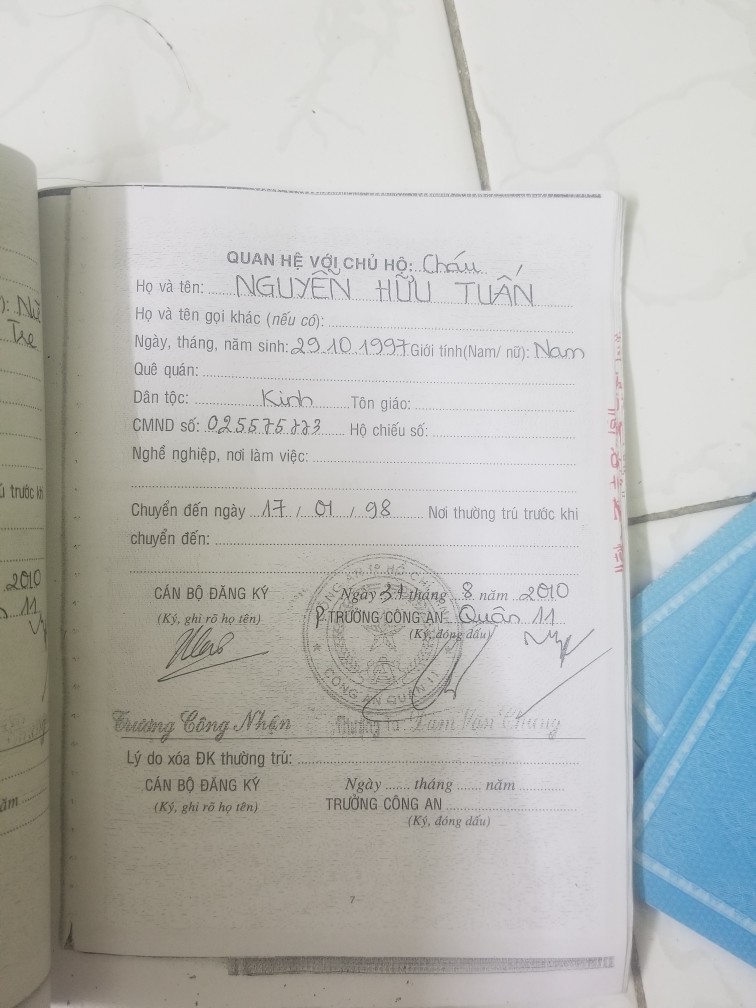 QUAN HỆ VỚI CHỦ HỘ: Cháu
Họ và tên: NGUYỄN HỮU TUẤN
Họ và tên gọi khác (nếu có):
Ngày, tháng, năm sinh: 29.10.1997 Giới tính(Nam/ nữ): Nam
Quê quán:
Dân tộc: Kinh Tôn giáo:
CMND số: Hộ chiếu số:
Nghề nghiệp, nơi làm việc:
Chuyển đến ngày 17 / 01 / 98 Nơi thường trú trước khi
chuyển đến:
CÁN BỘ ĐĂNG KÝ
(Ký, ghi rõ họ tên)
Ngày 31 tháng 8 năm 2010
P. TRƯỞNG CÔNG AN Quận 11
(Ký, đóng dấu)
CÔNG AN QUẬN 11
Trương Công Nhận
Lý do xóa ĐK thường trú:
CÁN BỘ ĐĂNG KÝ
(Ký, ghi rõ họ tên)
Ngày ...... tháng ...... năm
TRƯỞNG CÔNG AN
(Ký, đóng dấu)
7
ú trước khi
2010
11